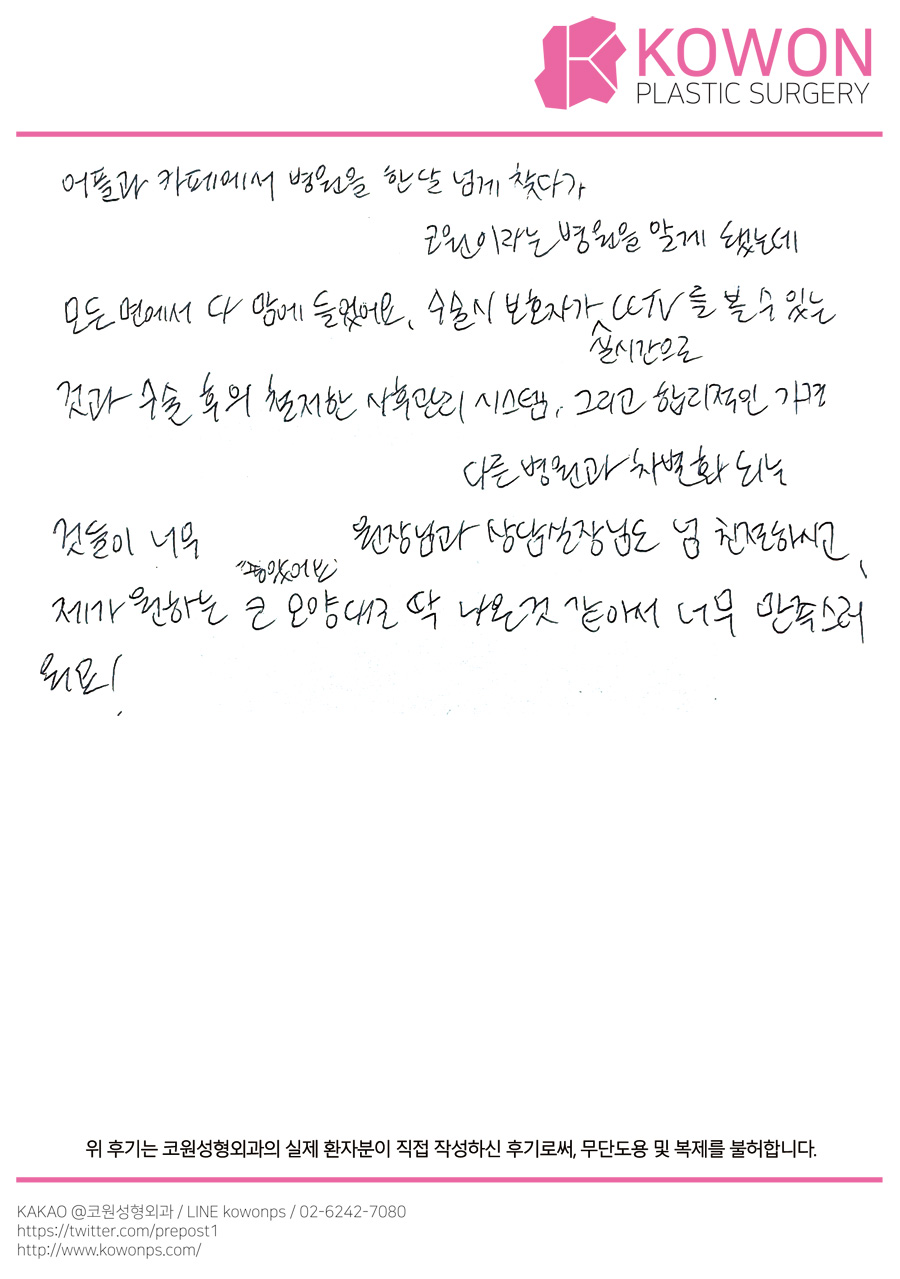 KOWON
PLASTIC SURGERY
어플과 카페에서 병원을 한달 넘게 찾다가
코원이라는 병원을 알게 됐는데
모든 면에서 다 맘에 들었어요. 수술시 보호자가 CCTV를 볼 수 있는
실시간으로
것과 수술 후의 철저한 사후관리 시스템, 그리고 합리적인 가격
다른 병원과 차별화 되는
것들이 너무 원장님과 상담실장님도 넘 친절하시고,
제가 원하는 코 모양대로 딱 나온것 같아서 너무 만족스러
워요!
위 후기는 코원성형외과의 실제 환자분이 직접 작성하신 후기로써, 무단도용 및 복제를 불허합니다.
KAKAO @코원성형외과 / LINE kowonps / 02-6242-7080
https://twitter.com/prepost1
http://www.kowonps.com/